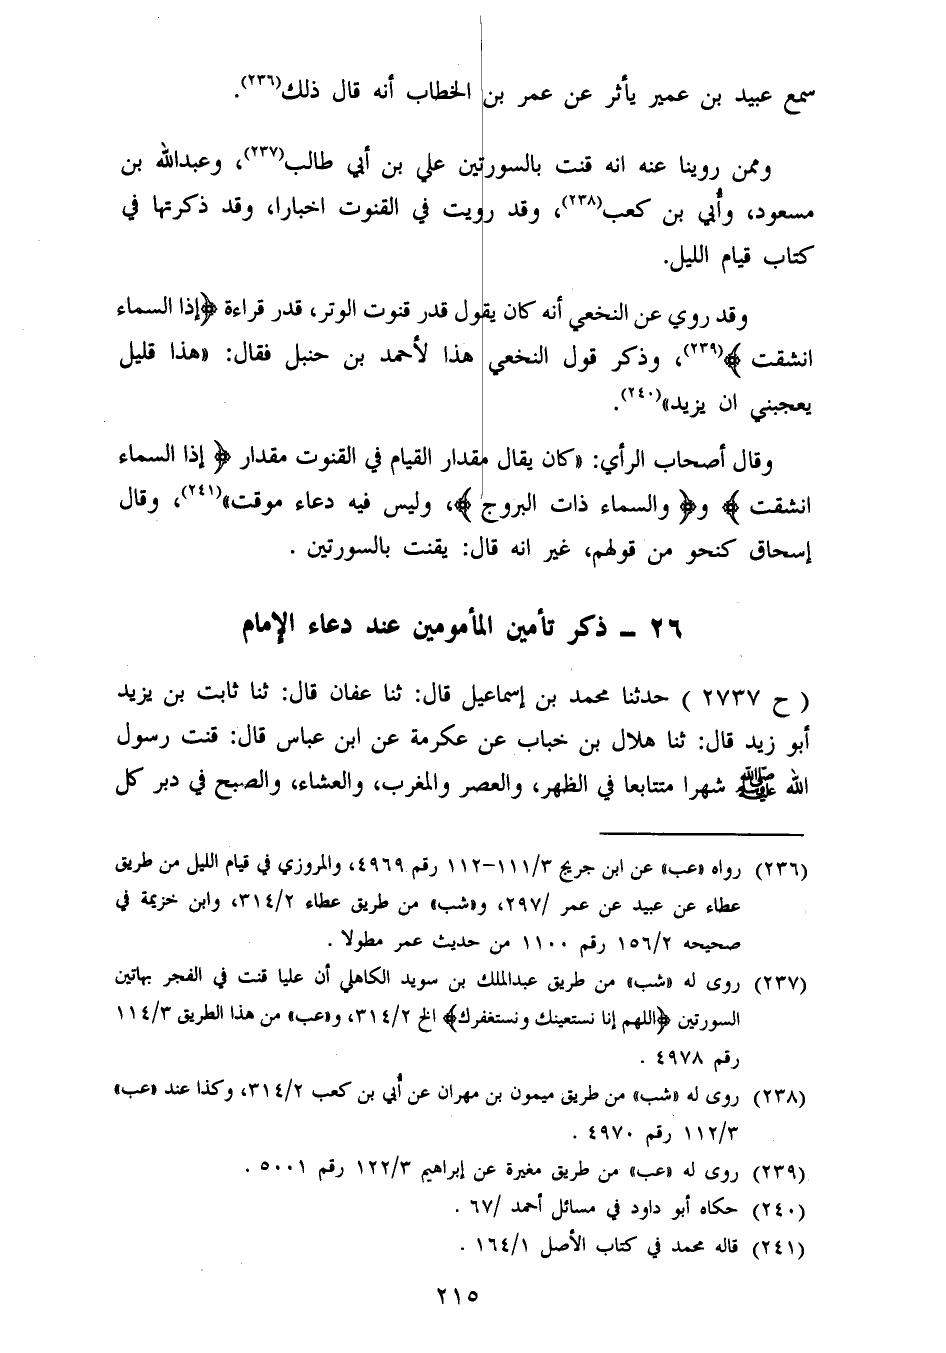 سمع عبيد بن عمير يأثر عن عمر بن الخطاب أنه قال ذلك(٢٣٦).
وممن روينا عنه انه قنت بالسورتين علي بن أبي طالب(٢٣٧)، وعبدالله بن
مسعود، وأُبي بن كعب(٢٣٨)، وقد رويت في القنوت اخبارا، وقد ذكرتها في
كتاب قيام الليل.
وقد روي عن النخعي أنه كان يقول قدر قنوت الوتر، قدر قراءة ﴿إذا السماء
انشقت﴾(٢٣٩)، وذكر قول النخعي هذا لأحمد بن حنبل فقال: «هذا قليل
يعجبني ان يزيد»(٢٤٠).
وقال أصحاب الرأي: «كان يقال مقدار القيام في القنوت مقدار ﴿إذا السماء
انشقت﴾ و﴿والسماء ذات البروج﴾، وليس فيه دعاء موقت»(٢٤١)، وقال
إسحاق كنحو من قولهم، غير انه قال: يقنت بالسورتين .
٢٦ – ذكر تأمين المأمومين عند دعاء الإمام
( ح ٢٧٣٧ ) حدثنا محمد بن إسماعيل قال: ثنا عفان قال: ثنا ثابت بن يزيد
أبو زيد قال: ثنا هلال بن خباب عن عكرمة عن ابن عباس قال: قنت رسول
الله ﷺ شهرا متتابعا في الظهر، والعصر والمغرب، والعشاء، والصبح في دبر كل
(٢٣٦) رواه «عب» عن ابن جريج ٣/١١١–١١٢ رقم ٤٩٦٩، والمروزي في قيام الليل من طريق
عطاء عن عبيد عن عمر /٢٩٧، و«شب» من طريق عطاء ٣١٤/٢، وابن خزيمة في
صحيحه ١٥٦/٢ رقم ١١٠٠ من حديث عمر مطولا .
(٢٣٧) روى له «شب» من طريق عبدالملك بن سويد الكاهلي أن عليا قنت في الفجر بهاتين
السورتين ﴿اللهم إنا نستعينك ونستغفرك﴾ الخ ٣١٤/٢، و«عب» من هذا الطريق ١١٤/٣
رقم ٤٩٧٨ .
(٢٣٨) روى له «شب» من طريق ميمون بن مهران عن أُبي بن كعب ٣١٤/٢، وكذا عند «عب»
١١٢/٣ رقم ٤٩٧٠ .
(٢٣٩) روى له «عب» من طريق مغيرة عن إبراهيم ١٢٢/٣ رقم ٥٠٠١ .
(٢٤٠) حكاه أبو داود في مسائل أحمد /٦٧ .
(٢٤١) قاله محمد في كتاب الأصل ١٦٤/١ .
٢١٥